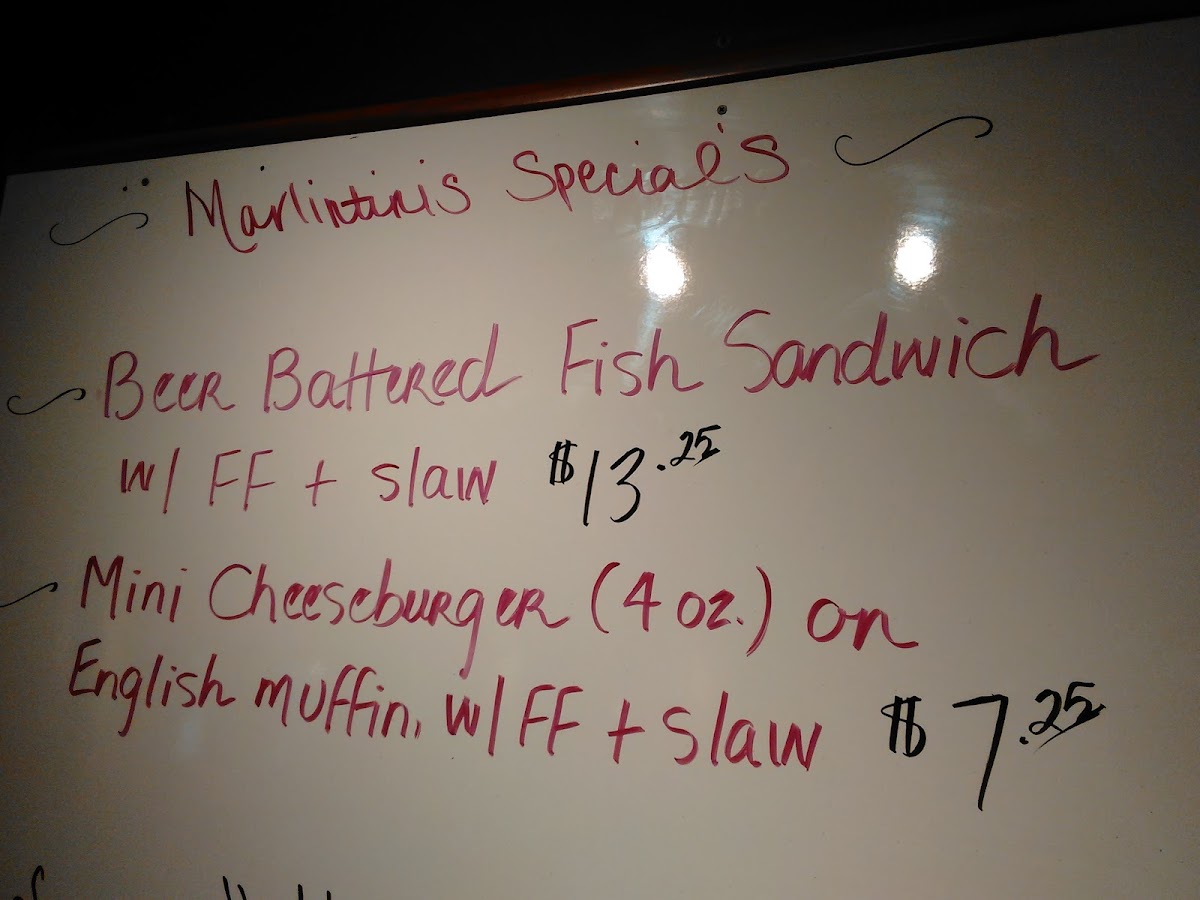 Marlintinis Special's
Beer Battered Fish Sandwich
w/ FF + slaw $13.25
Mini Cheeseburger (4 oz.) on
English muffin, w/ FF + slaw $7.25